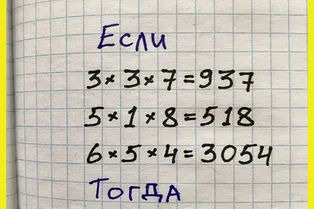 Если
3×3×7=937
5×1×8=518
6×5×4=3054
Тогда